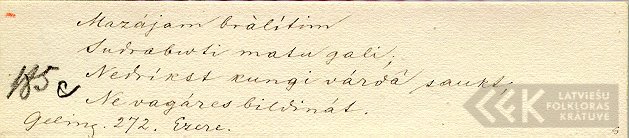 Mazájam brálítim
Sudrabuoti matu gali;
185 c Nedríkst kungi várdá saukt,
Ne vagáres bildinát.
Geling. 272. Ezere.
LATVIEŠU
FOLKLORAS
KRĀTUVE